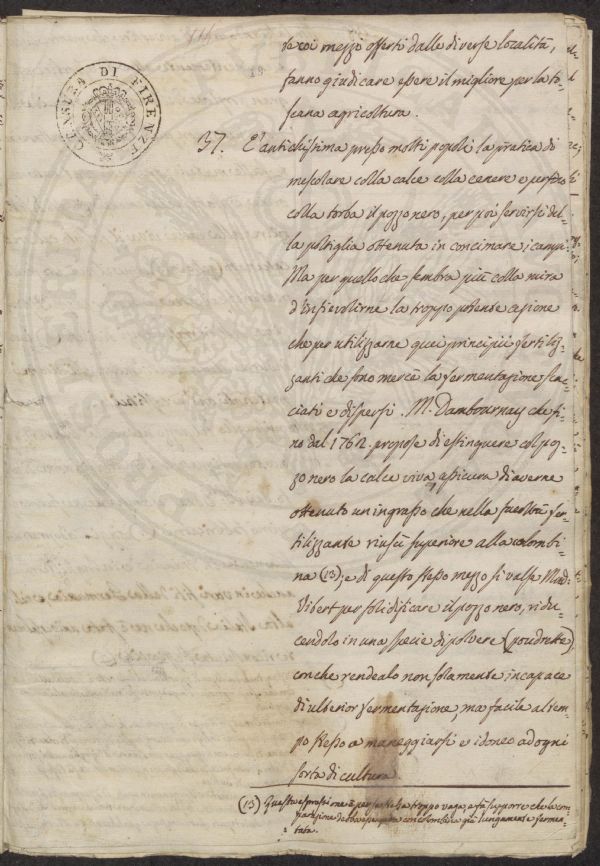 CENSURA DI FIRENZE
19
te coi mezzi offerti dalle diverse località,
fanno giudicare essere il migliore per la to-
scana agricoltura.
37. È antichissima presso molti popoli la pratica di
mescolare colla calce colla cenere e perfino
colla torba il pozzo nero, per poi servirsi del-
la poltiglia ottenuta in concimare i campi.
Ma per quello che sembra più colla mira
d'infievolirne la troppo potente azione
che per utilizzarne quei principii fertiliz-
zanti che sono mercè la fermentazione
ciati e dispersi. M. Dambournay che fi-
no dal 1762. propose di estinguere col poz-
zo nero la calce viva, assicura di averne
ottenuto un ingrasso che nella facoltà fer-
tilizzante riuscì superiore alla colombi-
na (13); e di questo stesso mezzo si valse Mad.
Vibert per solidificare il pozzo nero, ridu-
cendolo in una specie di polvere (poudrette)
con che rendealo non solamente incapace
di ulterior fermentazione, ma facile al tem-
po stesso a maneggiarsi e idoneo ad ogni
sorta di cultura.
(13) Questa espressione è per se stessa troppo vaga, e fa supporre che la com-
parazione debba essere con colombina già lungamente fermen-
tata.